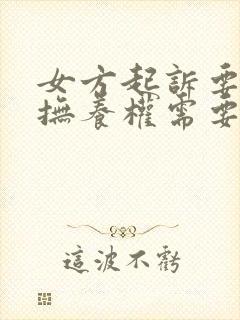 女方起訴要
撫養權需要
這波不虧